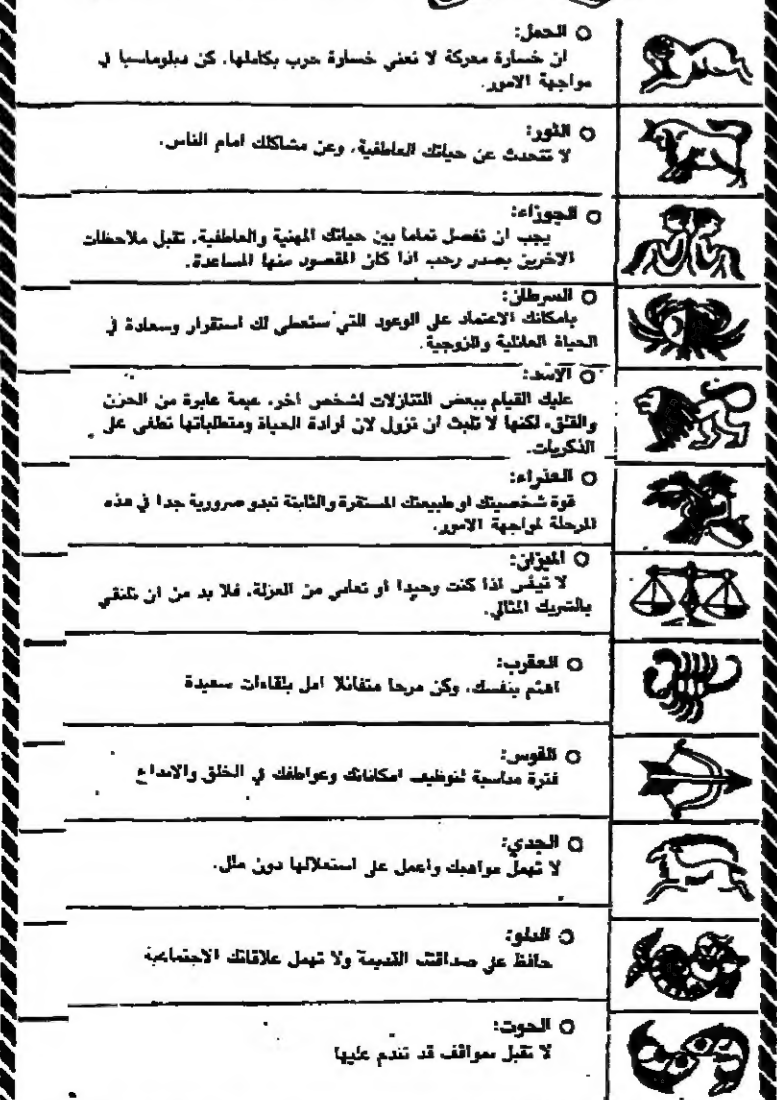 الحمل:
ان خسارة معركة لا تعني خسارة حرب بكاملها. كن دبلوماسيا في
مواجهة الامور.
الثور:
لا تتحدث عن حياتك العاطفية، وعن مشاكلك امام الناس.
الجوزاء:
يجب ان تفصل تماما بين حياتك المهنية والعاطفية. تقبل ملاحظات
الاخرين بصدر رحب اذا كان المقصود منها المساعدة.
السرطان:
بامكانك الاعتماد على الوعود التي ستعطي لك استقرار وسعادة في
الحياة العائلية والزوجية.
الاسد:
عليك القيام ببعض التنازلات لشخص اخر. غيمة عابرة من الحزن
والقلق، لكنها لا تلبث ان تزول لان ارادة الحياة ومتطلباتها تطغى على
الذكريات.
العذراء:
قوة شخصيتك او طبيعتك المستقرة والثابتة تبدو ضرورية جدا في هذه
المرحلة لمواجهة الامور.
الميزان:
لا تيئس اذا كنت وحيدا أو تعاني من العزلة. فلا بد من ان تلتقي
بالشريك المثالي.
العقرب:
اهتم بنفسك، وكن مرحا متفائلا امل بلقاءات سعيدة
القوس:
فترة مناسبة لتوظيف امكاناتك وعواطفك في الخلق والابداع
الجدي:
لا تهمل مواهبك واعمل على استغلالها دون ملل.
الدلو:
حافظ على صداقتك القديمة ولا تهمل علاقاتك الاجتماعية
الحوت:
لا تقبل بمواقف قد تندم عليها